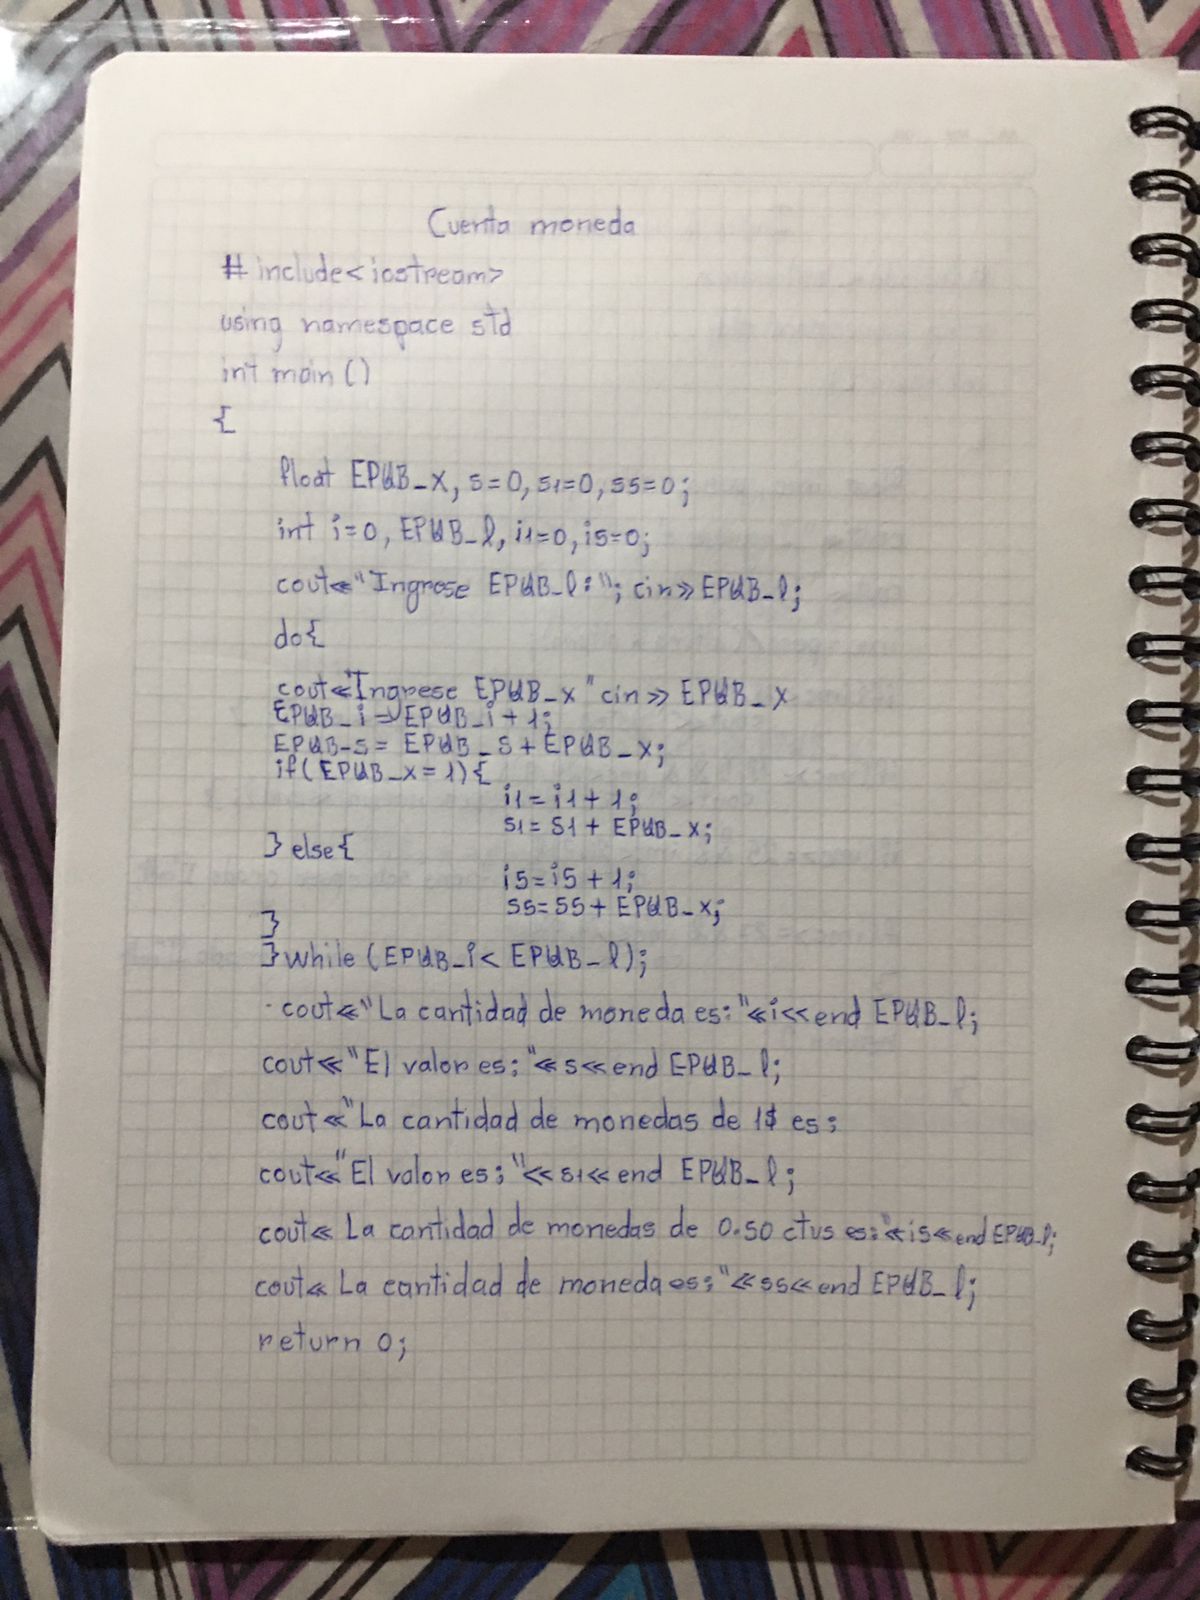 Cuenta moneda
# include<iostream>
using namespace std
int main ()
{
float EPUB_x, s=0, s1=0, s5=0;
int i=0, EPUB_l, i1=0, i5=0;
cout<<"Ingrese EPUB_l:"; cin>>EPUB_l;
do{
cout<<"Ingrese EPUB_x" cin>> EPUB_x
EPUB_i = EPUB_i + 1;
EPUB_s = EPUB_s + EPUB_x;
if(EPUB_x=1){
i1=i1+1;
s1=s1+ EPUB_x;
} else{
i5=i5+1;
s5=s5+ EPUB_x;
}
}while (EPUB_i< EPUB_l);
cout<<"La cantidad de moneda es:"<<i<<end EPUB_l;
cout<<"El valor es:"<<s<<end EPUB_l;
cout<<"La cantidad de monedas de 1$ es:
cout<<"El valor es:"<<s1<<end EPUB_l;
cout<< La cantidad de monedas de 0.50 ctvs es:"<<i5<<end EPUB_l;
cout<< La cantidad de moneda es:"<<s5<<end EPUB_l;
return 0;